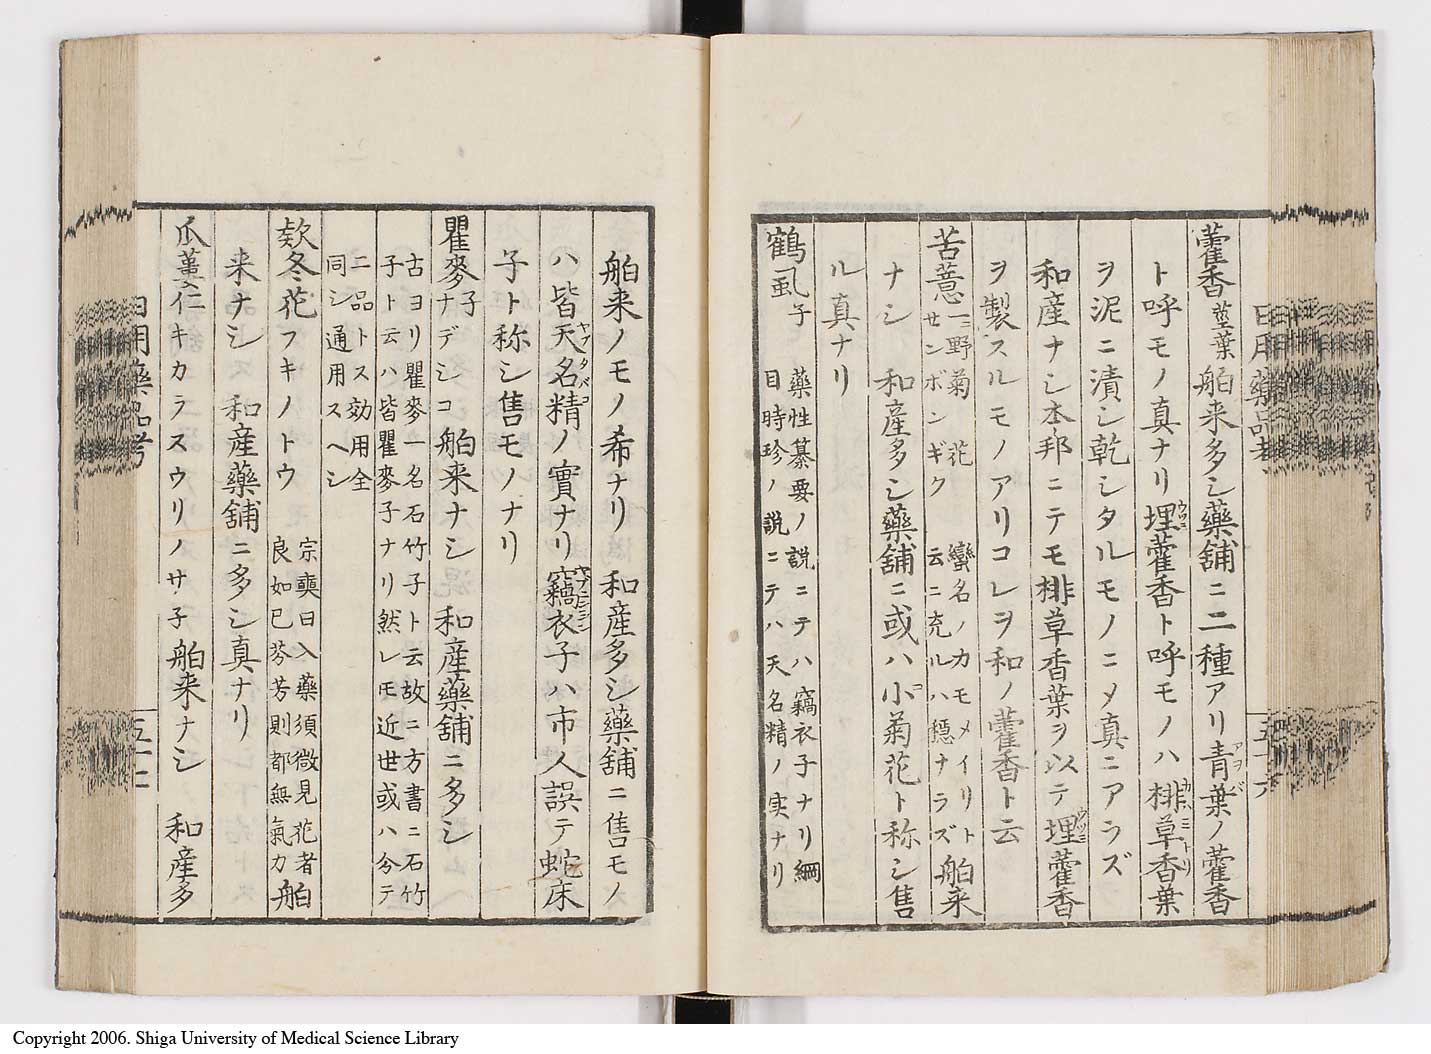 藿香 莖葉 舶来多シ藥舗ニ二種アリ青葉ノ藿香
アヲバ
ト呼モノ真ナリ埋藿香ト呼モノハ排草香葉
ウツミ
カハミトリ
ヲ泥ニ漬シ乾シタルモノニメ真ニアラズ
和産ナシ本邦ニテモ排草香葉ヲ以テ埋藿香
ウツミ
ヲ製スルモノアリコレヲ和ノ藿香ト云
苦薏 一ニ野菊花
せンボンギク
蠻名ノカモメイリト
云ニ充ルハ穩ナラズ
舶来
ナシ 和産多シ藥舗ニ或ハ小菊花ト称シ售
コ
ル真ナリ
鶴虱子
藥性纂要ノ説ニテハ竊衣子ナリ綱
目時珍ノ説ニテハ天名精ノ实ナリ
舶来ノモノ希ナリ 和産多シ藥舗ニ售モノ
ハ皆天名精ノ實ナリ竊衣子ハ市人誤テ蛇床
ヤブタバコ
子ト称シ售モノナリ
瞿麥子 ナデシコ 舶来ナシ 和産藥舗ニ多シ
古ヨリ瞿麥一名石竹子ト云故ニ方書ニ石竹
子ト云ハ皆瞿麥子ナリ然レモ近世或ハ今テ
二品トス効用全
同シ通用スヘシ
欵冬花 フキノトウ
宗奭曰入藥須微見花者
良如已芬芳則都無氣力
舶
来ナシ 和産藥舗ニ多シ真ナリ
瓜蔞仁 キカラスウリノサ子 舶来ナシ 和産多
日用藥品考
日用藥品考
五十二
Copyright 2006. Shiga University of Medical Science Library